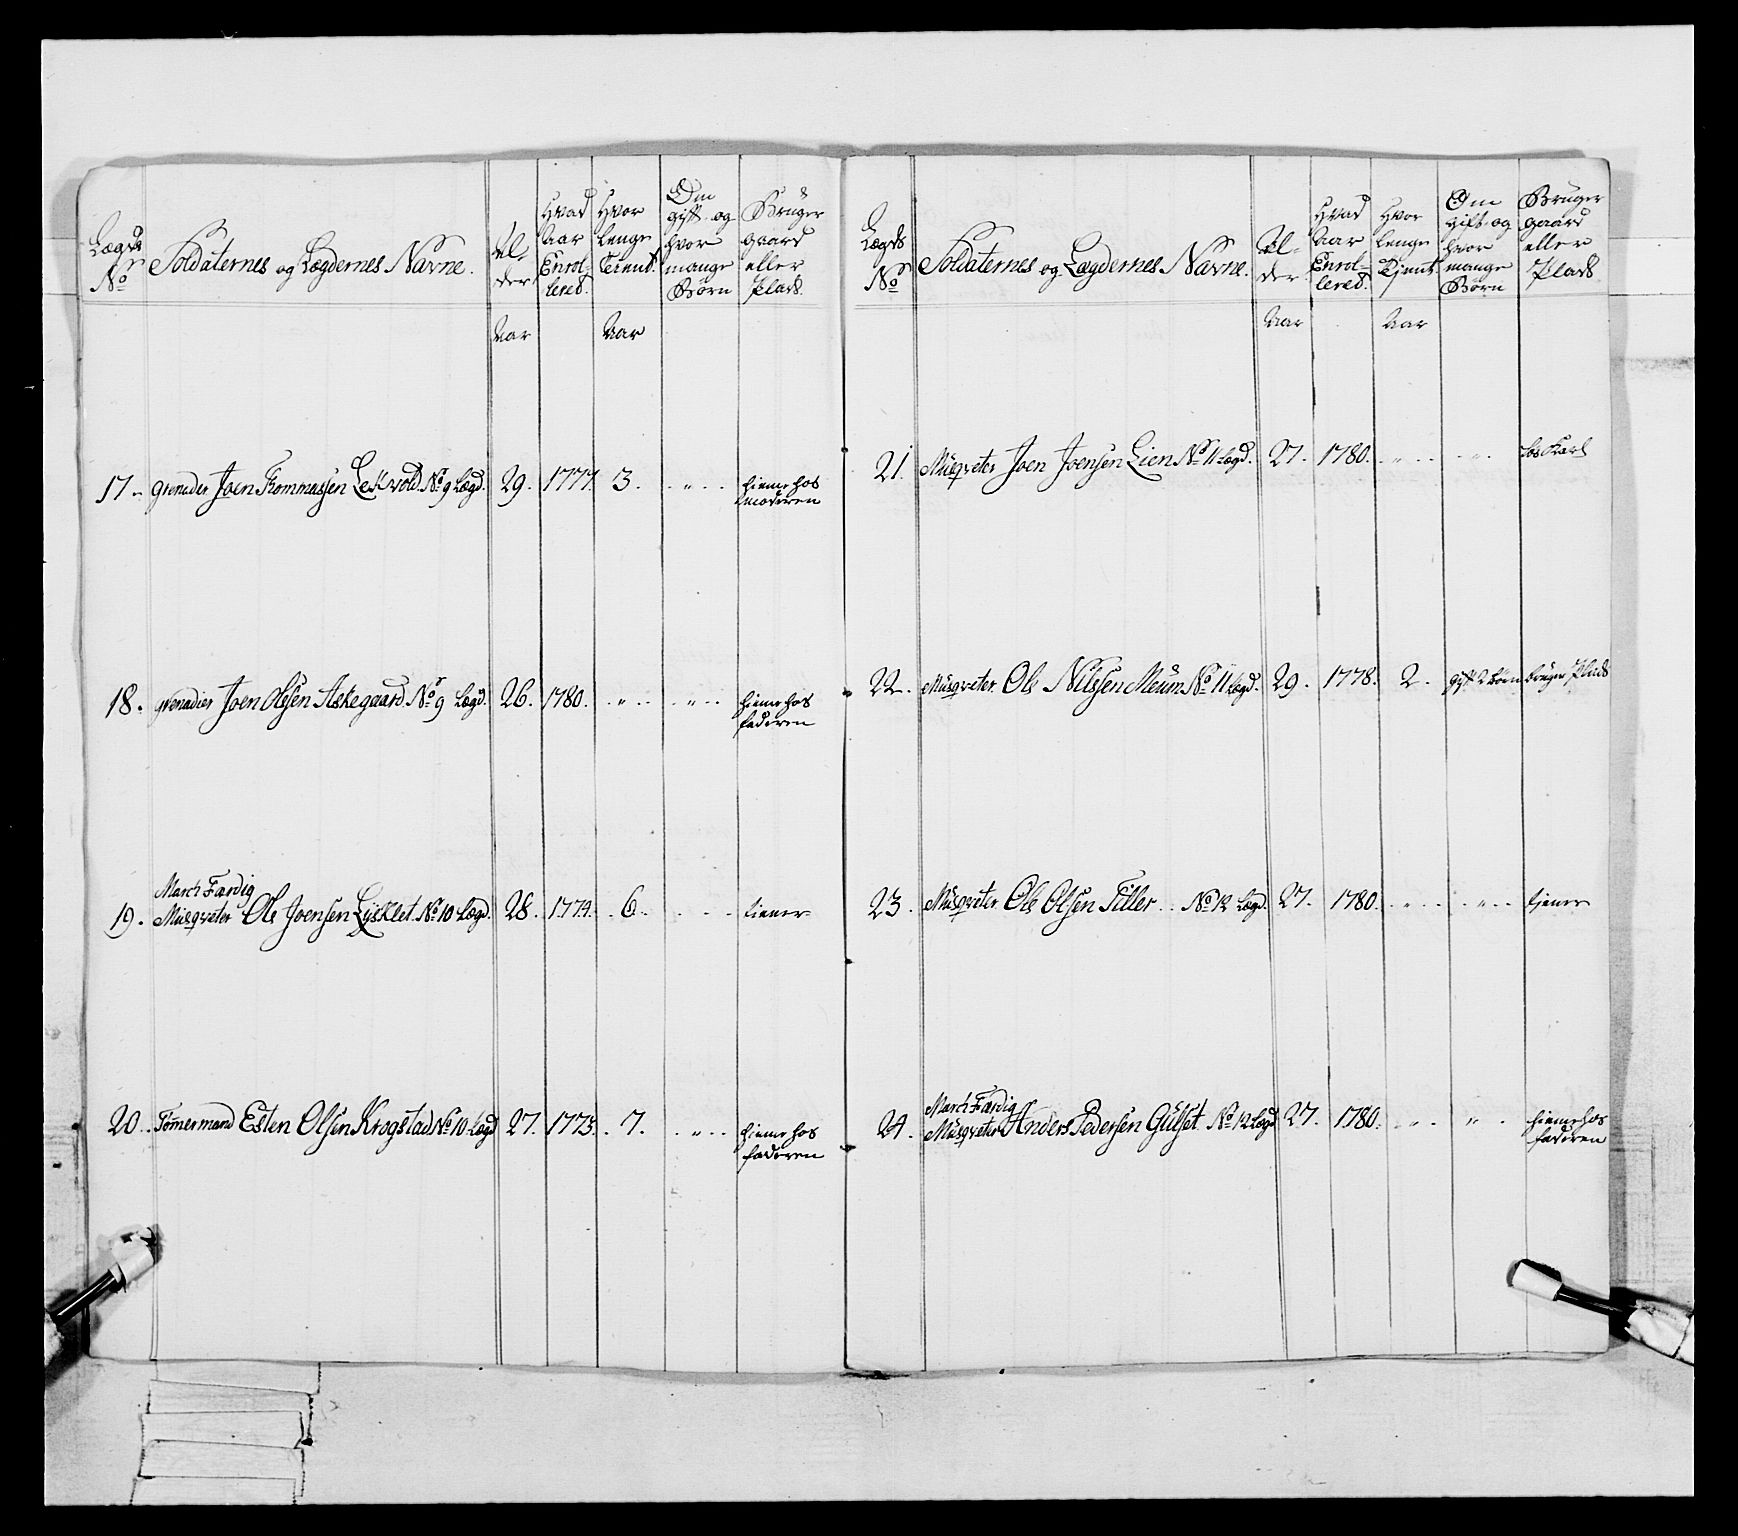 Lægds No | Soldaternes og Lægdernes Navne. | Al- der | Hvad Aar Enrol- lered. | Hvor lenge Tient. | Om gift og hvor mange Börn | Bruger gaard eller Plads.
Aar | Aar
17. grenader Joen Thommassen Lekvold. No 9 Lægd. 29. 1777. 3. „ hiemme hos
moderen
18. grenadier Joen Olssen Askegaard. No 9 Lægd. 26. 1780. „ „ hiemme hos
faderen
March Færdig
19. Musqveter Ole Joensen Lysklet. No 10 Lægd. 28. 1774. 6. tiener
20. Tömermand Esten Olsen Krogstad No 10 Lægd 27. 1773. 7. „ hiemme hos
faderen
Lægds No | Soldaternes og Lægdernes Navne. | Al- der | Hvad Aar Enrol- lered. | Hvor lenge Tjent. | Om gift og hvor mange Börn | Bruger gaard eller Plads
Aar | Aar
21. Musqveter Joen Joensen Lien No 11 Lægd. 27. 1780. „ „ los Karl
22. Musqveter. Ole Nilssen Meum No 11 Lægd. 29. 1778. 2. gift 2 börn bruger Plads
23. Musqveter. Ole Olsen Tiller No 12 Lægd. 27. 1780. „ „ tjener
March Færdig
24. Musqveter Anders Pedersen Gulset. No 12 Lægd 27. 1780. „ „ hiemme hos
faderen